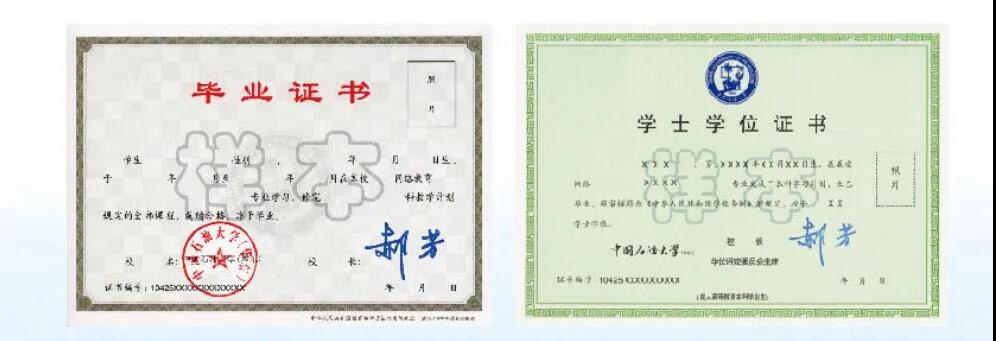 毕业证书
照
片
样本
学生 性别 , 年 月 日生,
于 年 月至 年 月在本校 网络教育
专业学习, 修完 科教学计划
规定的全部课程, 成绩合格, 准予毕业。
校 名: 校 长: 郝芳
证书编号: 10425XXXXXXXXXXXXX 年 月 日
学士学位证书
照
片
样本
XXX 男, XXXX年XX月XX日生。在我校
网络 XXXX 专业完成了本科学习计划, 业已
毕业, 经审核符合《中华人民共和国学位条例》的规定, 授予 XX
学士学位。
中国石油大学 校 长 郝芳
学位评定委员会主席
证书编号: 10425XXXXXXXXXX 年 月 日
(成人高等教育本科毕业生)